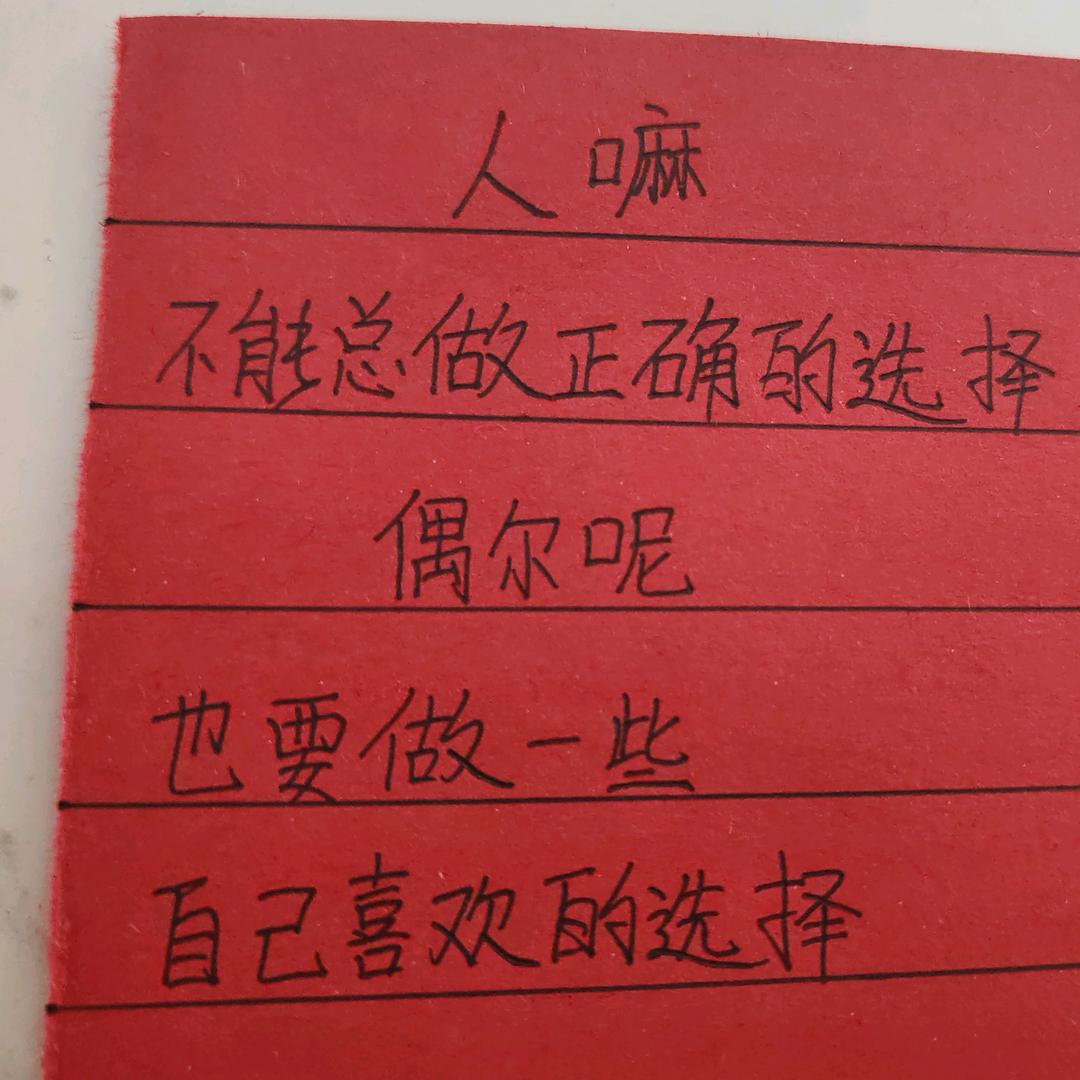 人嘛
不能总做正确的选择
偶尔呢
也要做一些
自己喜欢的选择